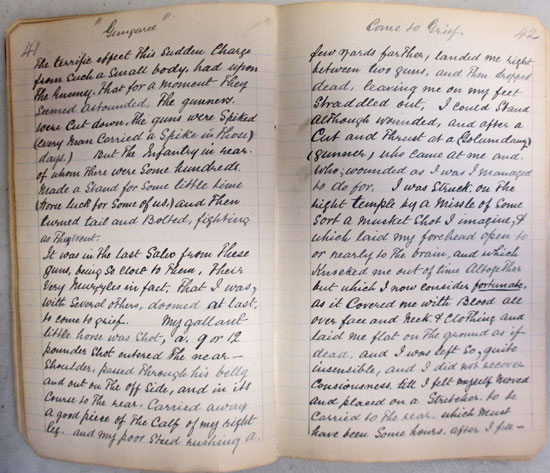 41
"Gungaree"
the terrific effect this Sudden Charge
from Such a Small body, had upon
the Enemy. That for a moment They
Seemed astounded, the gunners.
were Cut down, the guns were Spiked
(every man Carried a Spike in those)
days.) But the Infantry in rear.
of whom There were Some hundreds.
Made a Stand for Some little time
(Worse luck for Some of us,) and Then
turned tail and Bolted, fighting
as They went.
It was in the Last Salvo from These
guns, being So close to Them, Their
Very Muzzles in fact, That I was,
with Several others, doomed at Last,
to come to grief. My gallant
little horse was Shot, a. 9 or 12
pounder Shot entered The near—
Shoulder, passed through his belly
and out on the off Side, and in its
Course to the rear. Carried away
a good piece of the Calf of my right
leg. and my poor Steed rushing a
Come to Grief
42
few yards farther, landed me right
between two guns, and then dropped
dead, leaving me on my feet
Straddled out, I could Stand
although wounded, and after a
Cut and Thrust at a (Golumdang)
(gunner) who came at me and.
who, wounded as I was I managed
to do for. I was Struck on the
right temple by a Missle of Some
Sort a musket Shot I imagine, &
which laid my forehead open to
or nearly to the brain, and which
Knocked me out of time altogether
but which I now consider fortunate.
as it Covered me with Blood all
over face and Neck & Clothing and
laid me flat on the ground as if
dead, and I was left So, quite
insensible, and I did not recover
Consiousness, till I felt myself Moved
and placed on a Stretcher to be
Carried to the rear. which Must
have been Some hours. after I fell—